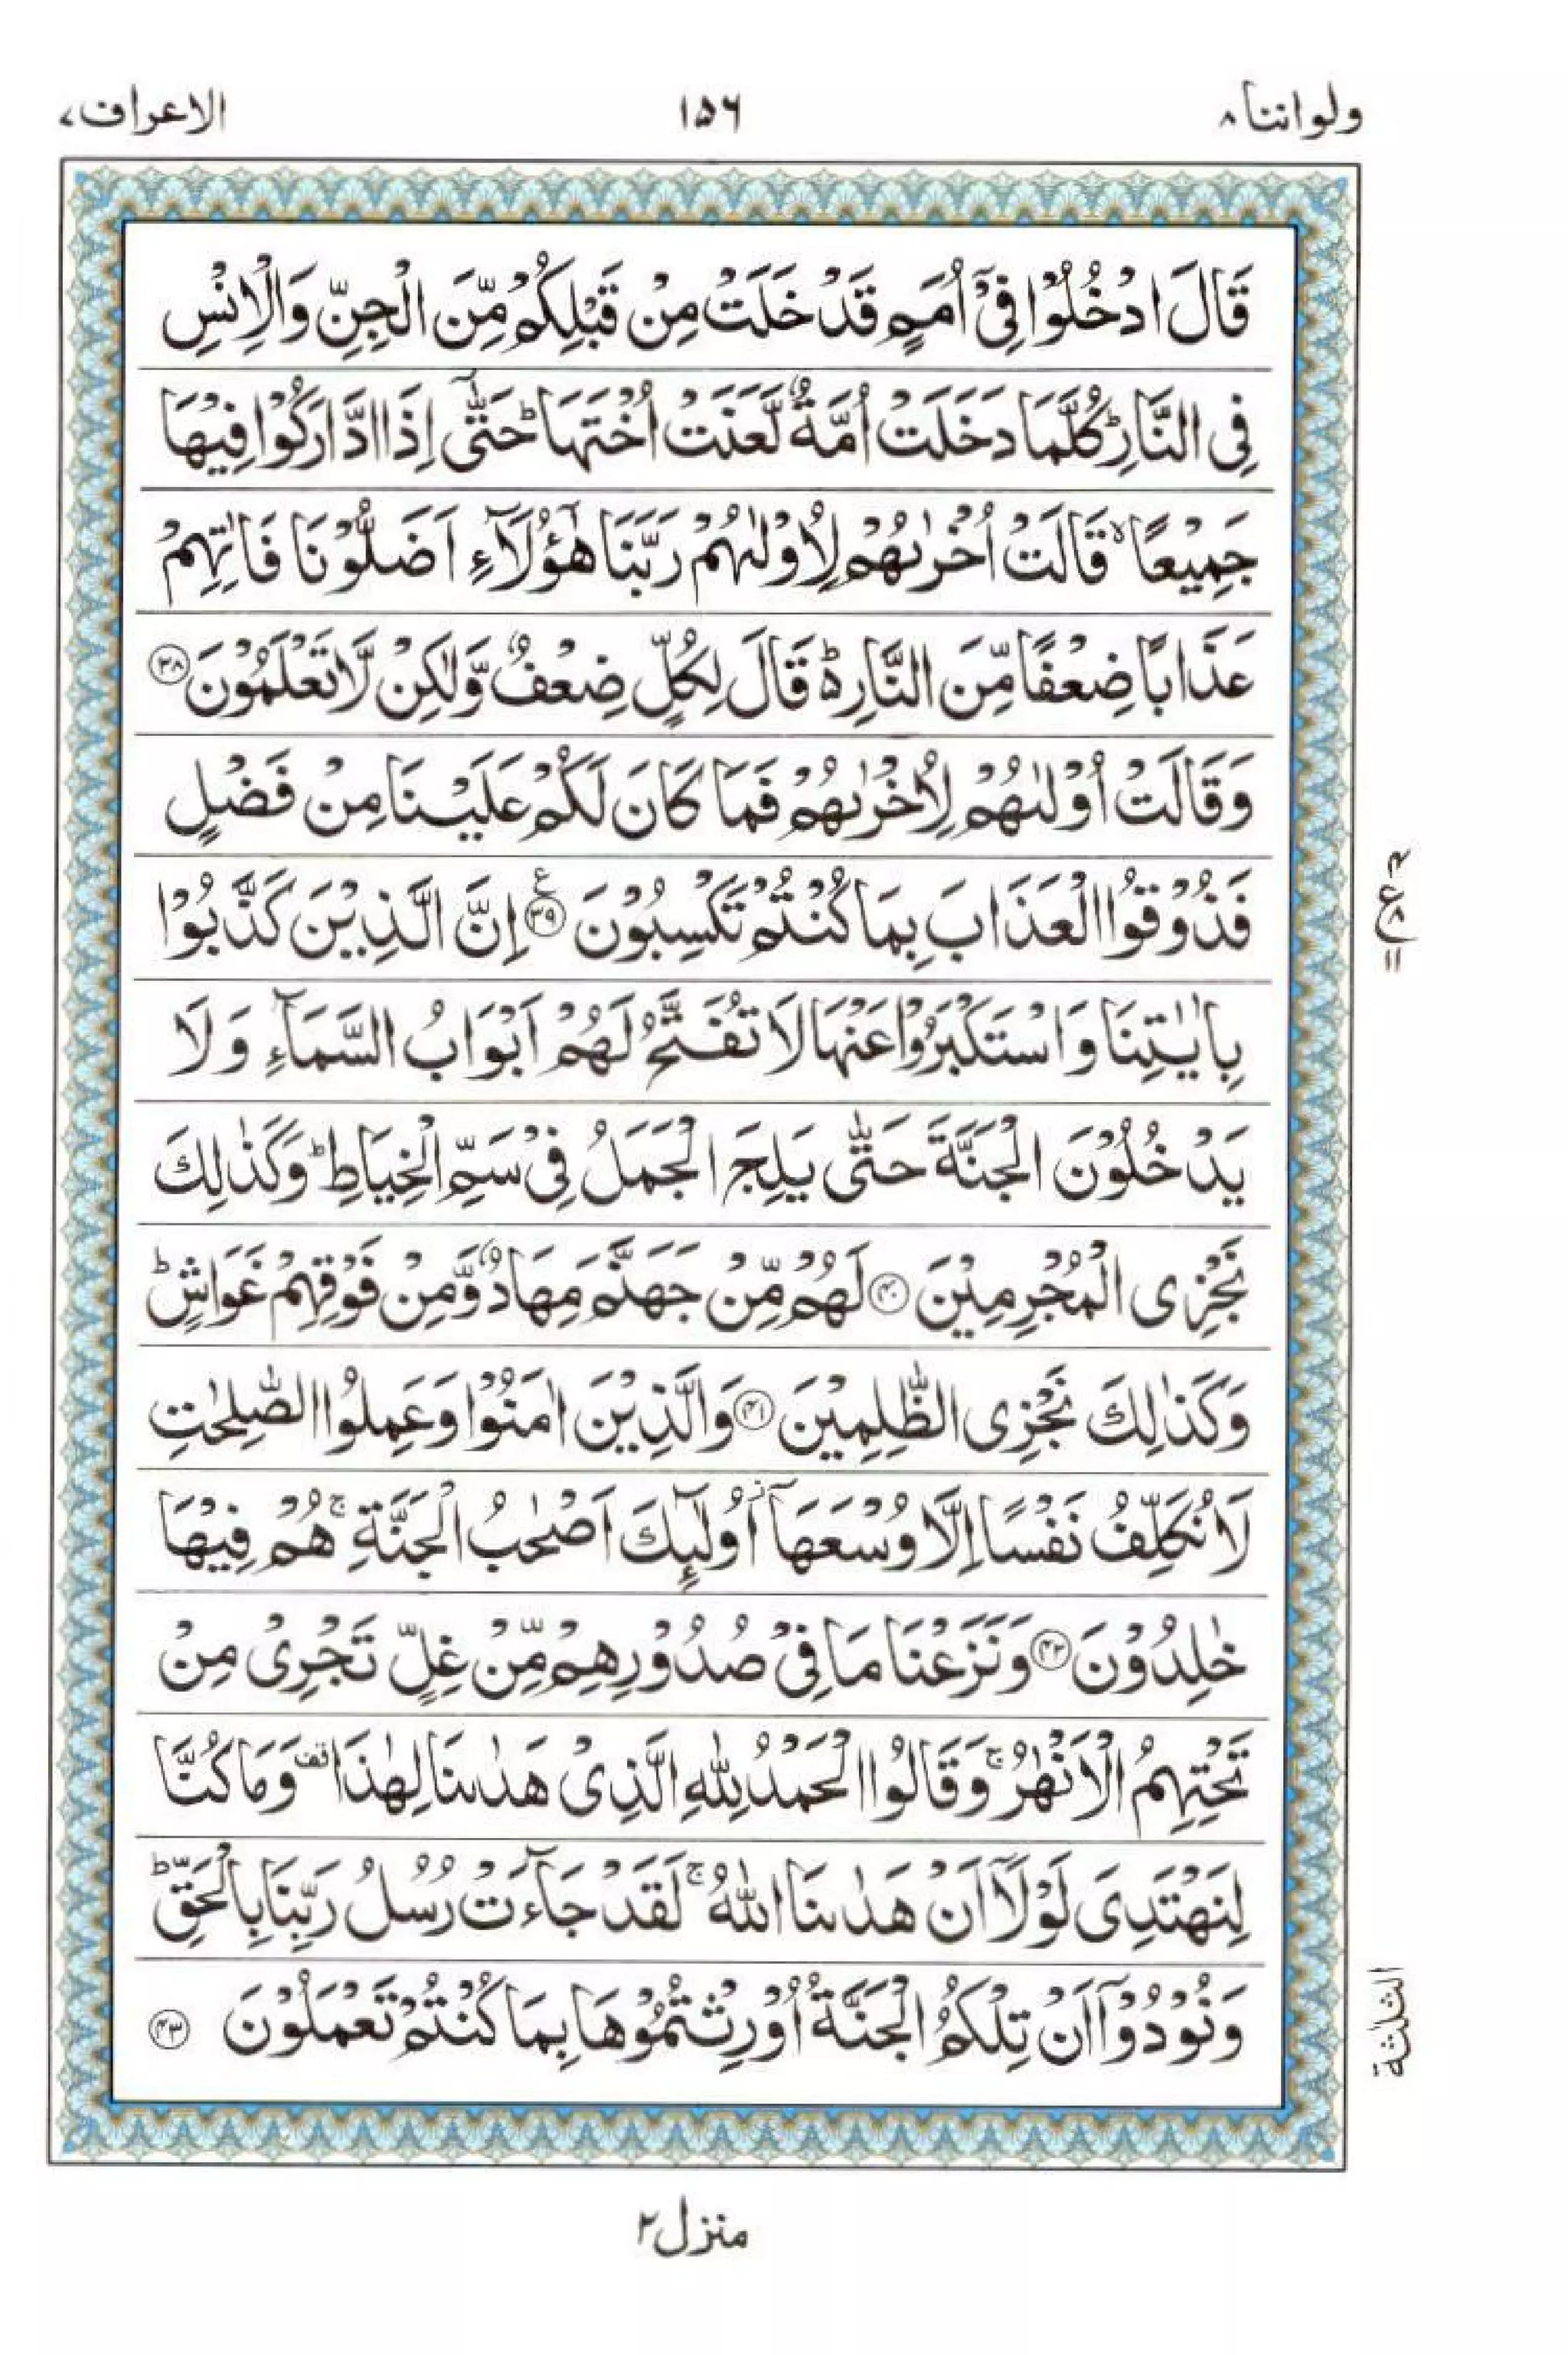 ولواننا ۸
۱۵۶
الاعراف ۷
قَالَ ادْخُلُوْا فِیْۤ اُمَمٍ قَدْ خَلَتْ مِنْ قَبْلِكُمْ مِّنَ الْجِنِّ وَالْاِنْسِ
فِی النَّارِ ؕ كُلَّمَا دَخَلَتْ اُمَّةٌ لَّعَنَتْ اُخْتَهَا ؕ حَتّٰۤی اِذَا ادَّارَكُوْا فِیْهَا
جَمِیْعًا ۙ قَالَتْ اُخْرٰىهُمْ لِاُوْلٰىهُمْ رَبَّنَا هٰۤؤُلَآءِ اَضَلُّوْنَا فَاٰتِهِمْ
عَذَابًا ضِعْفًا مِّنَ النَّارِ ؕ۬ قَالَ لِكُلٍّ ضِعْفٌ وَّلٰكِنْ لَّا تَعْلَمُوْنَ ۝۳۸
وَقَالَتْ اُوْلٰىهُمْ لِاُخْرٰىهُمْ فَمَا كَانَ لَكُمْ عَلَیْنَا مِنْ فَضْلٍ
فَذُوْقُوا الْعَذَابَ بِمَا كُنْتُمْ تَكْسِبُوْنَ ۝۳۹ ع اِنَّ الَّذِیْنَ كَذَّبُوْا
بِاٰیٰتِنَا وَاسْتَكْبَرُوْا عَنْهَا لَا تُفَتَّحُ لَهُمْ اَبْوَابُ السَّمَآءِ وَلَا
یَدْخُلُوْنَ الْجَنَّةَ حَتّٰی یَلِجَ الْجَمَلُ فِیْ سَمِّ الْخِیَاطِ ؕ وَكَذٰلِكَ
نَجْزِی الْمُجْرِمِیْنَ ۝۴۰ لَهُمْ مِّنْ جَهَنَّمَ مِهَادٌ وَّمِنْ فَوْقِهِمْ غَوَاشٍ ؕ
وَكَذٰلِكَ نَجْزِی الظّٰلِمِیْنَ ۝۴۱ وَالَّذِیْنَ اٰمَنُوْا وَعَمِلُوا الصّٰلِحٰتِ
لَا نُكَلِّفُ نَفْسًا اِلَّا وُسْعَهَاۤ ؗ اُولٰٓىِٕكَ اَصْحٰبُ الْجَنَّةِ ۚ هُمْ فِیْهَا
خٰلِدُوْنَ ۝۴۲ وَنَزَعْنَا مَا فِیْ صُدُوْرِهِمْ مِّنْ غِلٍّ تَجْرِیْ مِنْ
تَحْتِهِمُ الْاَنْهٰرُ ۚ وَقَالُوا الْحَمْدُ لِلّٰهِ الَّذِیْ هَدٰىنَا لِهٰذَا قف وَمَا كُنَّا
لِنَهْتَدِیَ لَوْلَاۤ اَنْ هَدٰىنَا اللّٰهُ ۚ لَقَدْ جَآءَتْ رُسُلُ رَبِّنَا بِالْحَقِّ ؕ
وَنُوْدُوْۤا اَنْ تِلْكُمُ الْجَنَّةُ اُوْرِثْتُمُوْهَا بِمَا كُنْتُمْ تَعْمَلُوْنَ ۝۴۳
الثلثة
منزل ۲